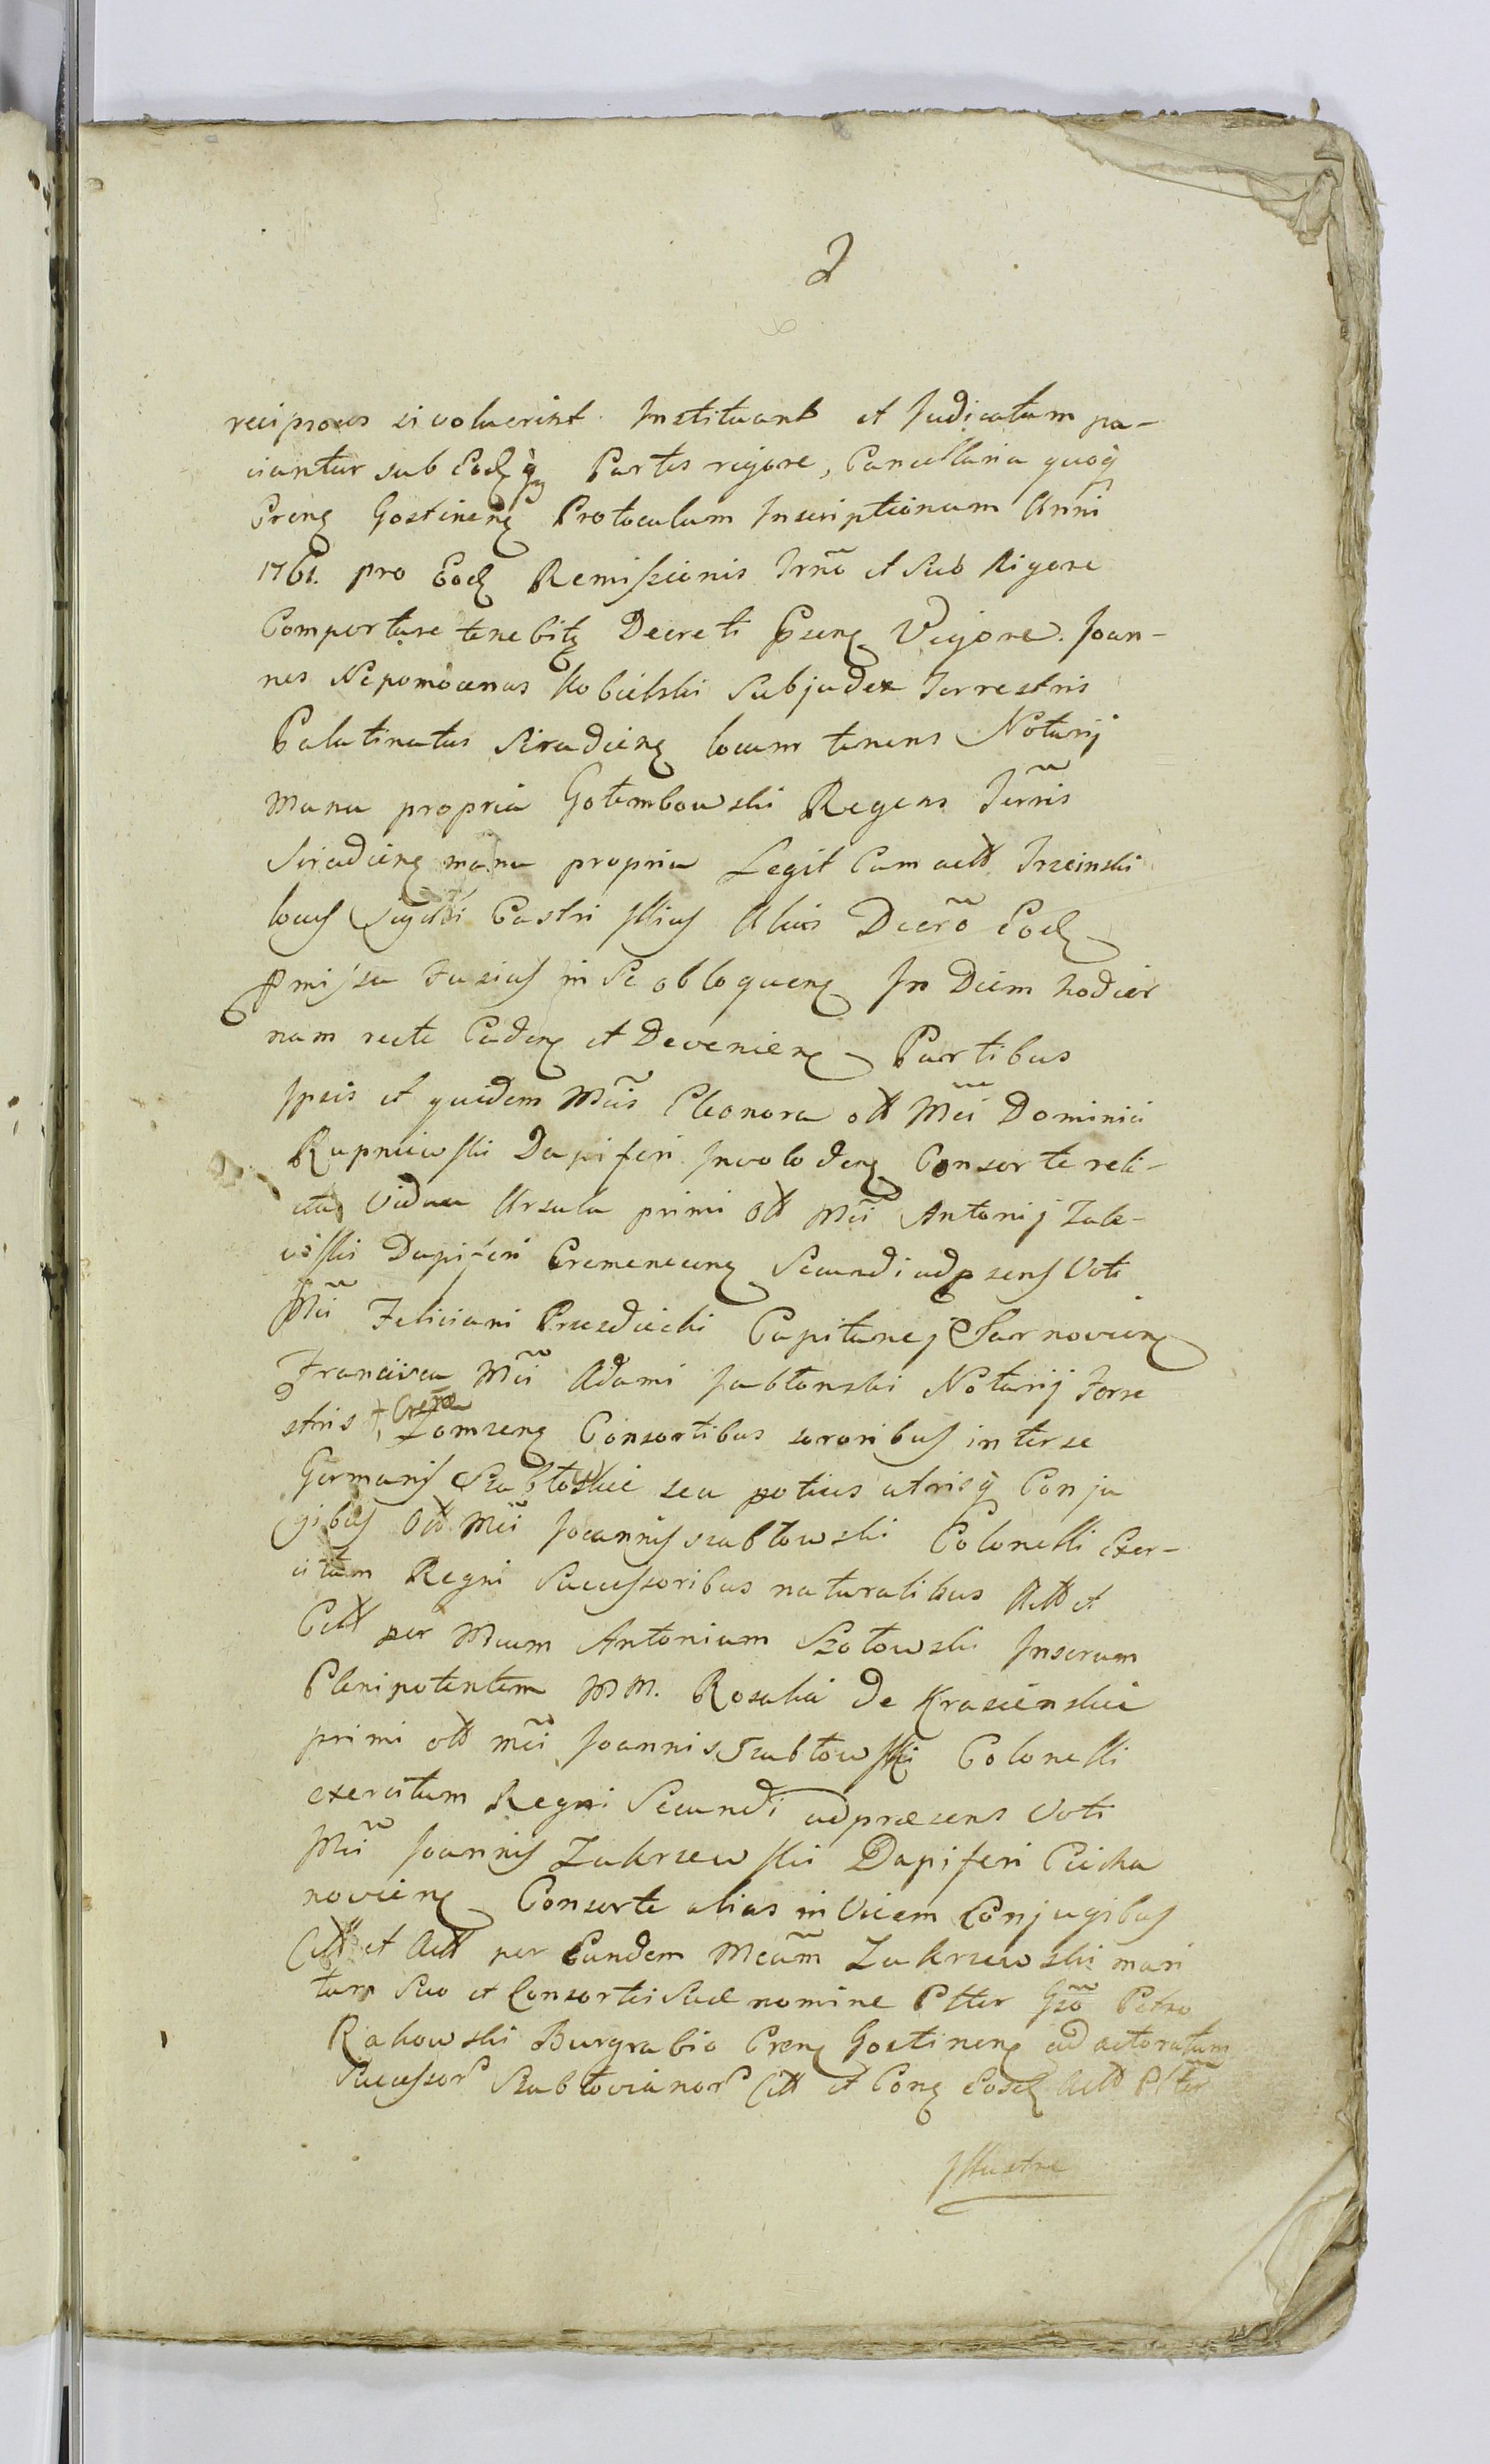 2
reciprocas si voluerint Instituant et Judicatum pa-
ciantur sub Eod Partis rigore, Cancellaria quoq
Crenq Gostinenq Protoculum Inscriptionum Anni
1761. pro Eod Remissionis Trno et Sub Rigore
Comportare tenebitq Decreti Psenq Vigore. Joan-
nes Nepomocenus Kobielski Subjudex Terrestris
Palatinatus Siradienq locum tenens Notarij
manu propria Gołembowski Regens Terris
Siradienq manu propria Legit Cum actt Trzcinski
locus Sigilli Castri Illius Alias Decro Eod
pmissa Fusius in Se obloquenq In Diem hodier
nam recte Cadenq et Devenienq Partibus
Ipsis et quidem Mcis Eleonora ott Mci Dominici
Rupniewski Dapiferi Inwołodenq Consorte reli-
cta Vidua Ursula primi ott Mci Antonij Zale-
wski Dapiferi Cremenecenq Secundi ad psens Voti
Mci Feliciani Przezdiecki Capitanej Tarnovienq
Francisca Mci Adami Jabłonski Notarij Terre
stris, Crenæ Łomzenq Consortibus sororibus inter se
Germanis Szabłoskie seu potius utrisq Conju
gibus Ott Mci Joannis szabłowski Colonelli Exer-
citum Regni Successoribus naturalibus Actt et
Citt per Mcum Antonium Szołowski Insorum
Plenipotentem MM. Rosalia de Krasienskie
primi ott mci Joannis szabłowski Colonelli
exercitum Regni Secundi ad præsens Voti
Mci Joannis Zakrzewski Dapiferi Ciecha
novienq Consorte alias in Vicem Conjugibus
Citt et Actt per Eundem Mcum Zakrzewski mari
tum Suo et Consortis Suæ nomine Ptter Gso Petro
Rakowski Burgrabio Crenq Gostinenq ad actoratum
Successor Szabłovianor Citt et Conq Eosd Actt Ptter
Illustre